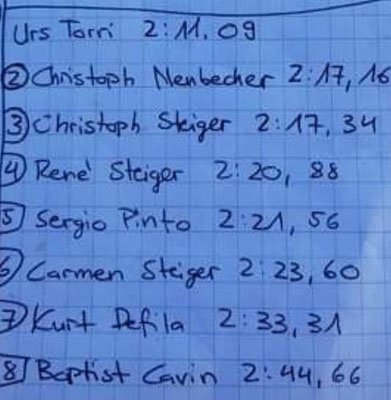 Urs Torri 2:11,09
② Christoph Nenbecher 2:17,16
③ Christoph Steiger 2:17,34
4 René Steiger 2:20,88
5 Sergio Pinto 2:21,56
6 Carmen Steiger 2:23,60
7 Kurt Defila 2:33,31
8 Baptist Cavin 2:44,66